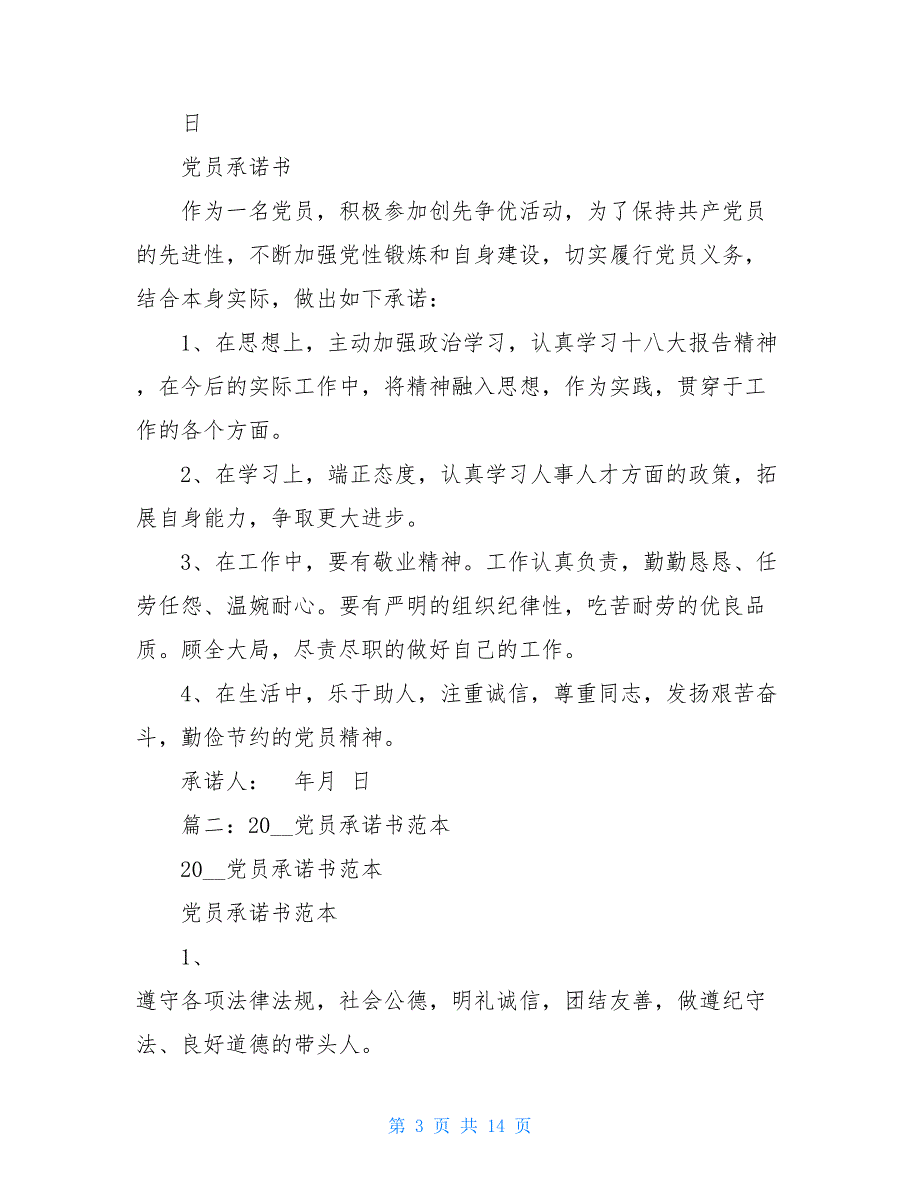 日
党员承诺书
作为一名党员，积极参加创先争优活动，为了保持共产党员
的先进性，不断加强党性锻炼和自身建设，切实履行党员义务，
结合本身实际，做出如下承诺：
1、在思想上，主动加强政治学习，认真学习十八大报告精神
，在今后的实际工作中，将精神融入思想，作为实践，贯穿于工
作的各个方面。
2、在学习上，端正态度，认真学习人事人才方面的政策，拓
展自身能力，争取更大进步。
3、在工作中，要有敬业精神。工作认真负责，勤勤恳恳、任
劳任怨、温婉耐心。要有严明的组织纪律性，吃苦耐劳的优良品
质。顾全大局，尽责尽职的做好自己的工作。
4、在生活中，乐于助人，注重诚信，尊重同志，发扬艰苦奋
斗，勤俭节约的党员精神。
承诺人： 年月 日
篇二：20__党员承诺书范本
20__党员承诺书范本
党员承诺书范本
1、
遵守各项法律法规，社会公德，明礼诚信，团结友善，做遵纪守
法、良好道德的带头人。
第 3 页 共 14 页